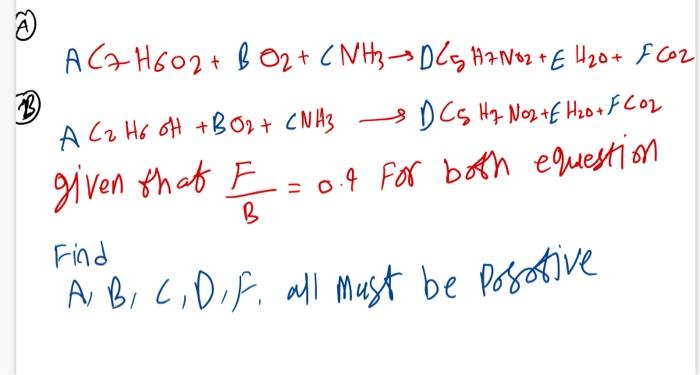 A
A C7 H6O2 + B O2 + C NH3 → D C5 H7 NO2 + E H2O + F CO2
B
A C2 H6 OH + B O2 + C NH3 → D C5 H7 NO2 + E H2O + F CO2
given that F/B = 0.9 For both equestion
Find
A, B, C, D, F. all must be Posotive